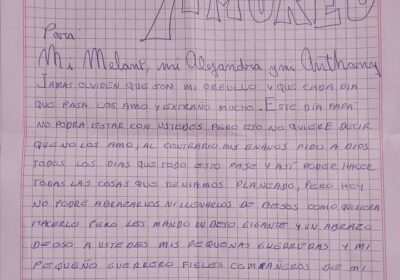 Para
Mi Melani, mi Alejandra y mi Anthony
JAMAS OLVIDEN QUE SON MI ORGULLO Y QUE CADA DIA
QUE PASA LOS AMO Y EXTRAÑO MUCHO. ESTE DÍA PAPA
NO PODRA ESTAR CON USTEDES PERO ESO NO QUIERE DECIR
QUE NO LOS AMO, AL CONTRARIO MIS ENANOS PIDO A DIOS
TODOS LOS DIAS QUE TODO ESTO PASE Y ASÍ PODER HACER
TODAS LAS COSAS QUE TENIAMOS PLANEADO, PERO HOY
NO PODRE ABRAZARLOS NI LLENARLOS DE BESOS COMO QUISIERA
HACERLO PERO LES MANDO UN BESO GIGANTE Y UN ABRAZO
DE OSO A USTEDES MIS PEQUEÑAS GUERRERAS Y MI
PEQUEÑO GUERRERO FIELES COMPAÑEROS DE MI